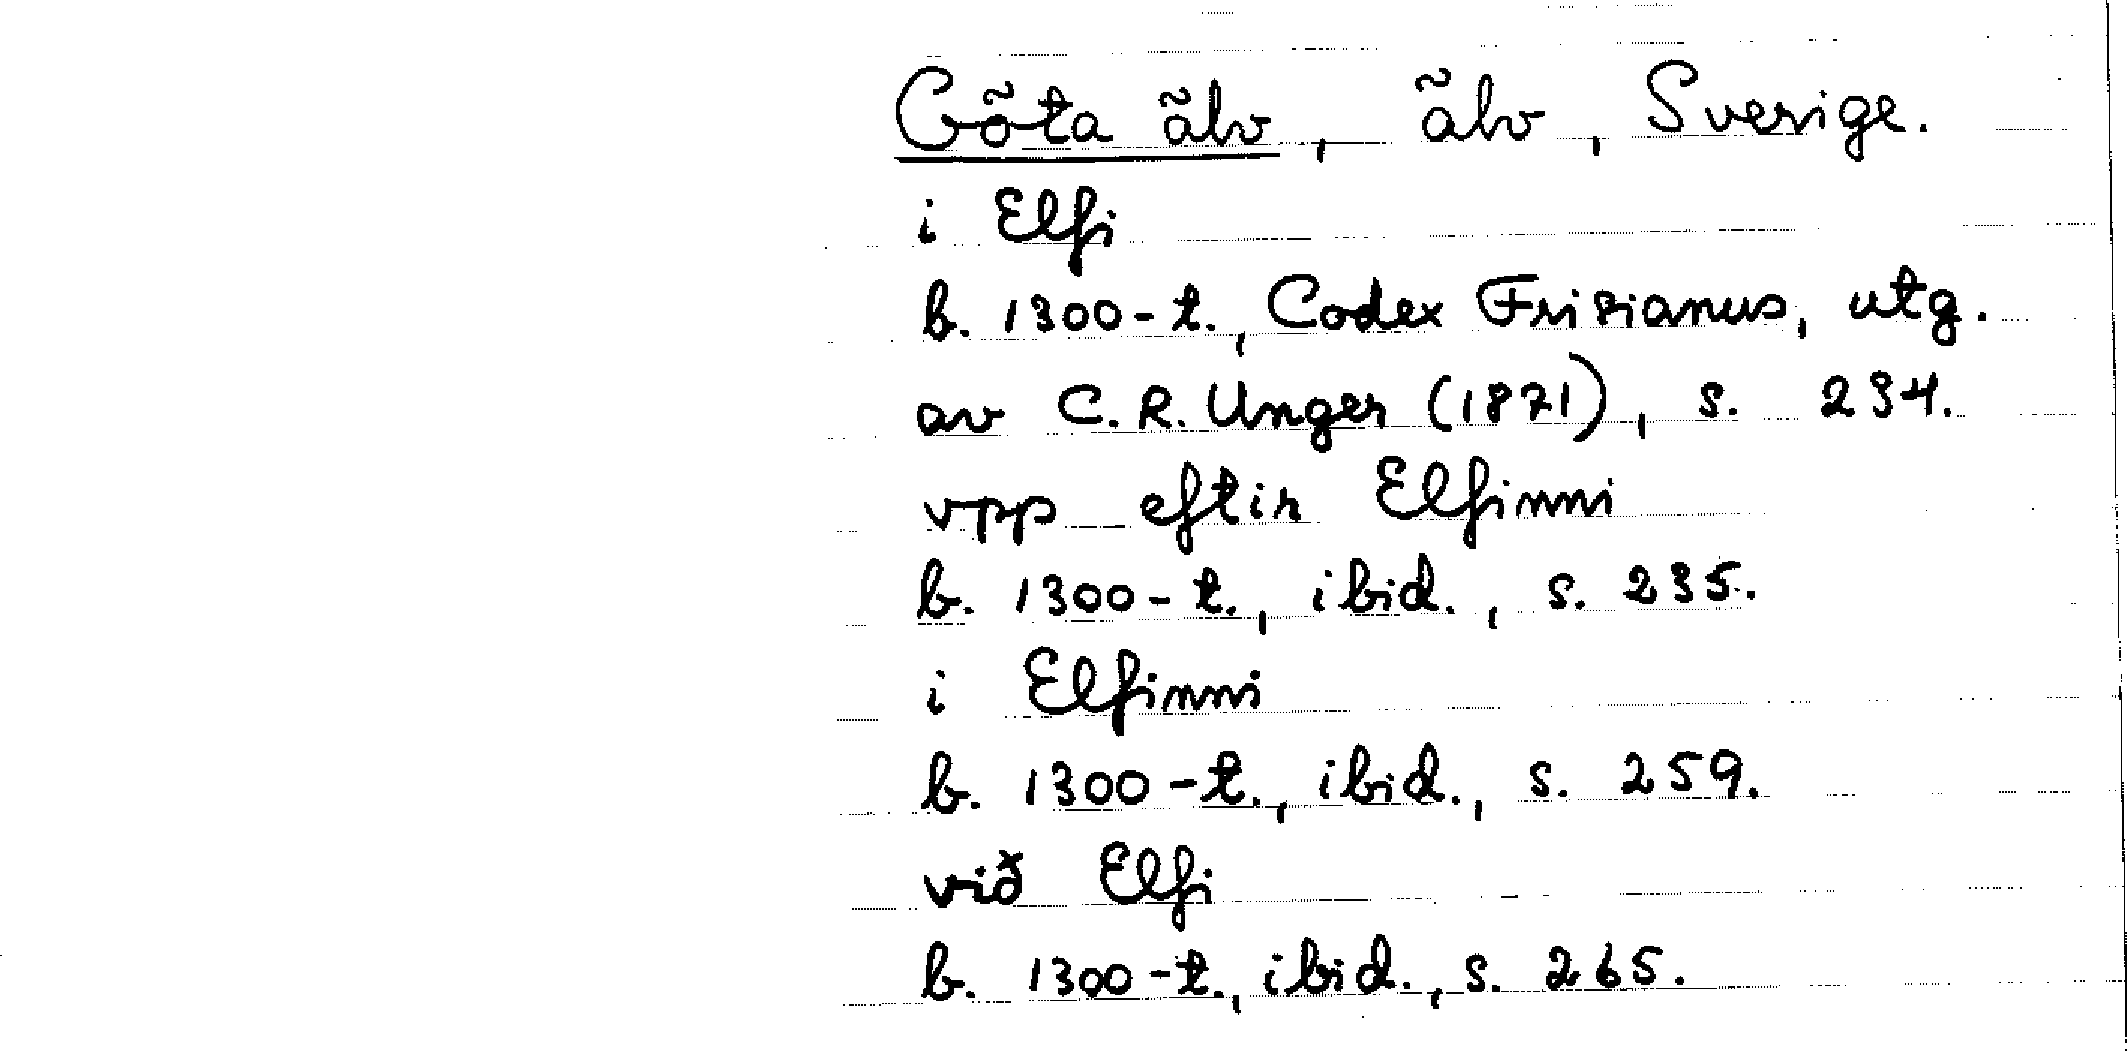 Göta älv, älv, Sverige.
i Elfi
b. 1300-t., Codex Frisianus, utg.
av C.R. Unger (1871), s. 234.
vpp eftir Elfinni
b. 1300-t., ibid., s. 235.
i Elfinni
b. 1300-t., ibid., s. 259.
við Elfi
b. 1300-t., ibid., s. 265.